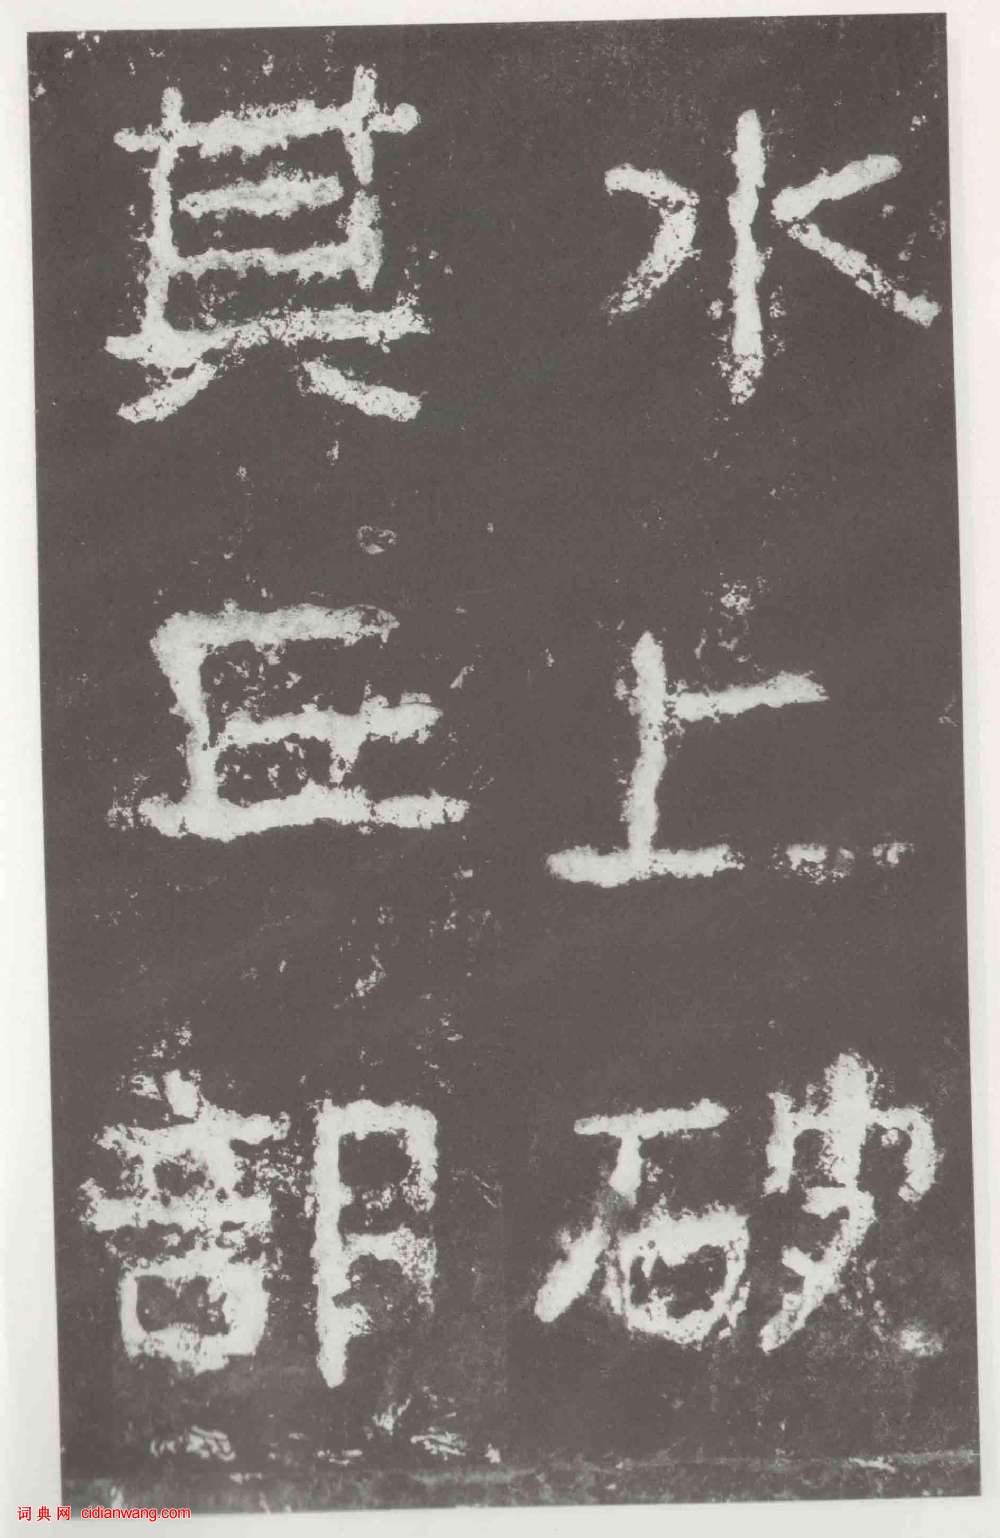 水上破
其丘部
词典网 cidianwang.com